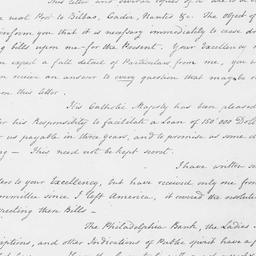 This letter and several copies of it are to be
next Post to Bilbao, Cadiz, Nantes &c. The object of
inform you that it is necessary immediately to cease dra
ing bills upon me for the Present. Your Excellency
expect a full detail of Particulars from me, you
receive an answer to every question that may be
on this letter.
His Catholic Majesty has been pleased
his Responsibility to facilitate a Loan of 150,000 Doll
us payable in three years, and to promise us some
This need not be kept secret.
I have written
ters to your Excellency, but have received only one from
ommittee since I left America, it covered the resolut
specting these Bills
The Philadelphia Bank, the Ladies
iptions, and other Indications of Public spirit have a